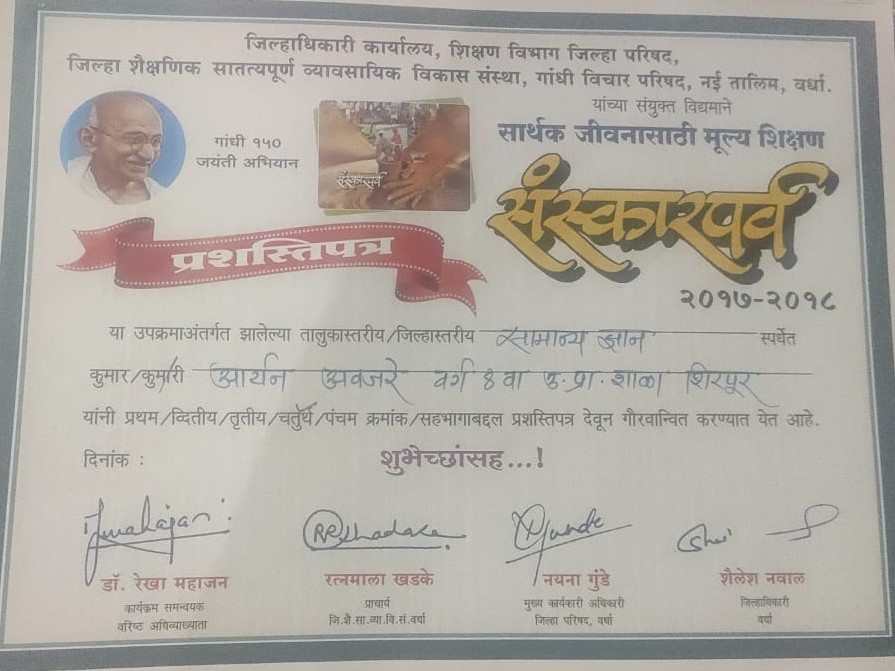 जिल्हाधिकारी कार्यालय, शिक्षण विभाग जिल्हा परिषद,
जिल्हा शैक्षणिक सातत्यपूर्ण व्यावसायिक विकास संस्था, गांधी विचार परिषद, नई तालिम, वर्धा.
यांच्या संयुक्त विद्यमाने
सार्थक जीवनासाठी मूल्य शिक्षण
गांधी १५०
जयंती अभियान
संस्कारपर्व
संस्कारपर्व
प्रशस्तिपत्र
२०१७-२०१८
या उपक्रमाअंतर्गत झालेल्या तालुकास्तरीय/जिल्हास्तरीय सामान्य ज्ञान स्पर्धेत
कुमार/कुमारी आर्यन अवजरे वर्ग ८ वा उ.प्रा.शाळा शिरपूर
यांनी प्रथम/द्वितीय/तृतीय/चतुर्थ/पंचम क्रमांक/सहभागाबद्दल प्रशस्तिपत्र देवून गौरवान्वित करण्यात येत आहे.
दिनांक :
शुभेच्छांसह...!
डॉ. रेखा महाजन
कार्यक्रम समन्वयक
वरिष्ठ अधिव्याख्याता
रत्नमाला खडके
प्राचार्य
जि.शै.सा.व्या.वि.सं.वर्धा
नयना गुंडे
मुख्य कार्यकारी अधिकारी
जिल्हा परिषद, वर्धा
शैलेश नवाल
जिल्हाधिकारी
वर्धा